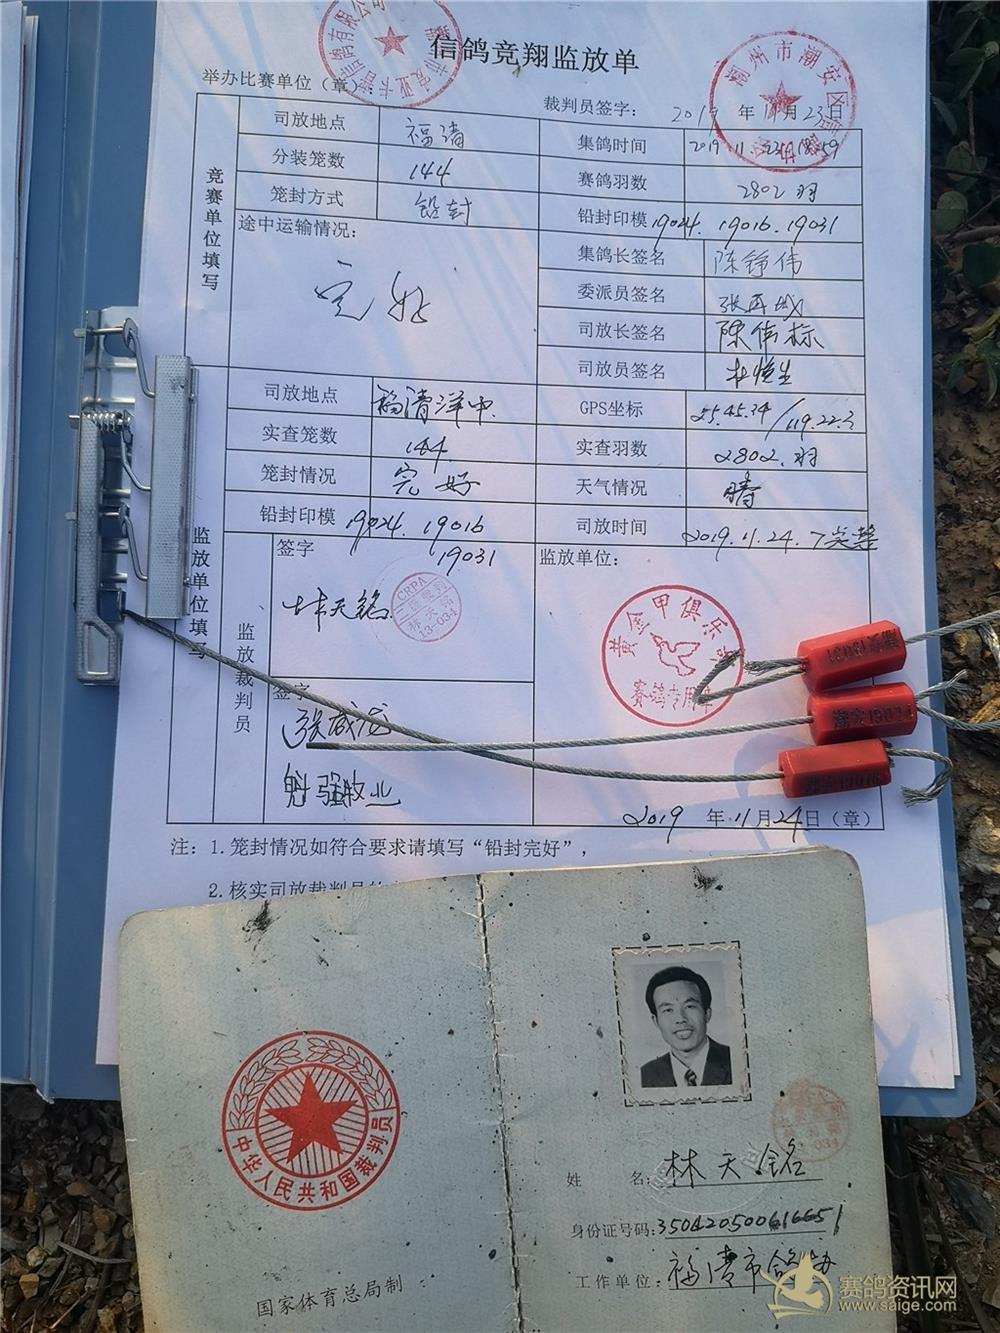 信鸽竞翔监放单
举办比赛单位（章
裁判员签字： 2019 年 11月 23日
潮州市潮安区
竞赛单位填写
司放地点 福清 集鸽时间 2019.11.23
分装笼数 144 赛鸽羽数 2802羽
笼封方式 铅封 铅封印模 19024. 19016. 19031
途中运输情况： 完好
集鸽长签名 陈铮伟
委派员签名
司放长签名 陈伟标
司放员签名 杜恒生
监放单位填写
司放地点 福清洋中. GPS坐标 25.45.34/119.22.3
实查笼数 144. 实查羽数 2802.羽
笼封情况 完好 天气情况 晴
铅封印模 19024. 19016 19031 司放时间 2019.11.24.7
监放裁判员
签字 林天铭 监放单位：
CRPA
林天铭
13-034
黄金甲俱乐部
赛鸽专用章
签字
张成龙
魁强牧业
潮安19031
潮安19024
潮安19016
2019 年 11月 24日（章）
注：1.笼封情况如符合要求请填写“铅封完好”，
2.核实司放裁判员
中华人民共和国裁判员
国家体育总局制
姓 名：林天铭
身份证号码：350420500616651
工作单位：福清市鸽协
赛鸽资讯网
www.saige.com